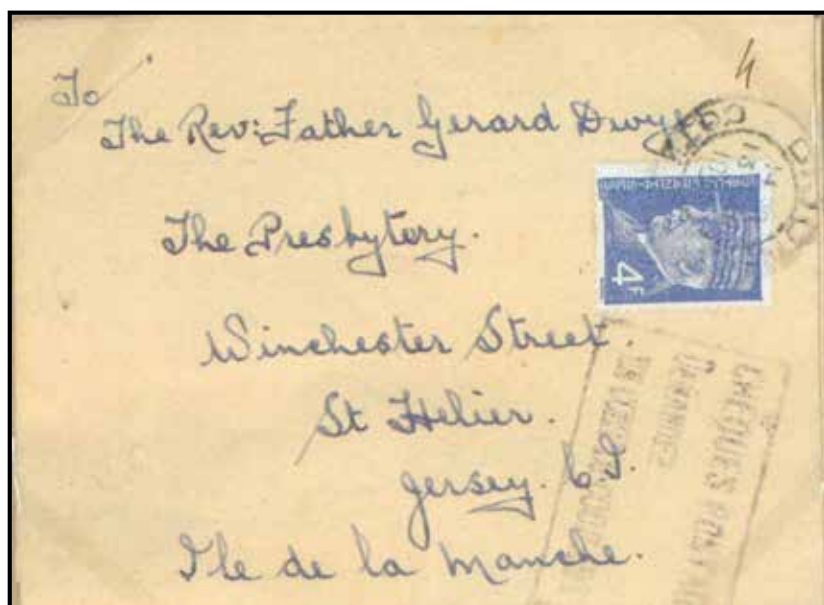 To
The Rev: Father Gerard Dwyer
The Presbytery.
Winchester Street.
St Helier.
Jersey. C.I.
Ile de la Manche.
4F
CHEQUES POSTAUX
DEMANDEZ